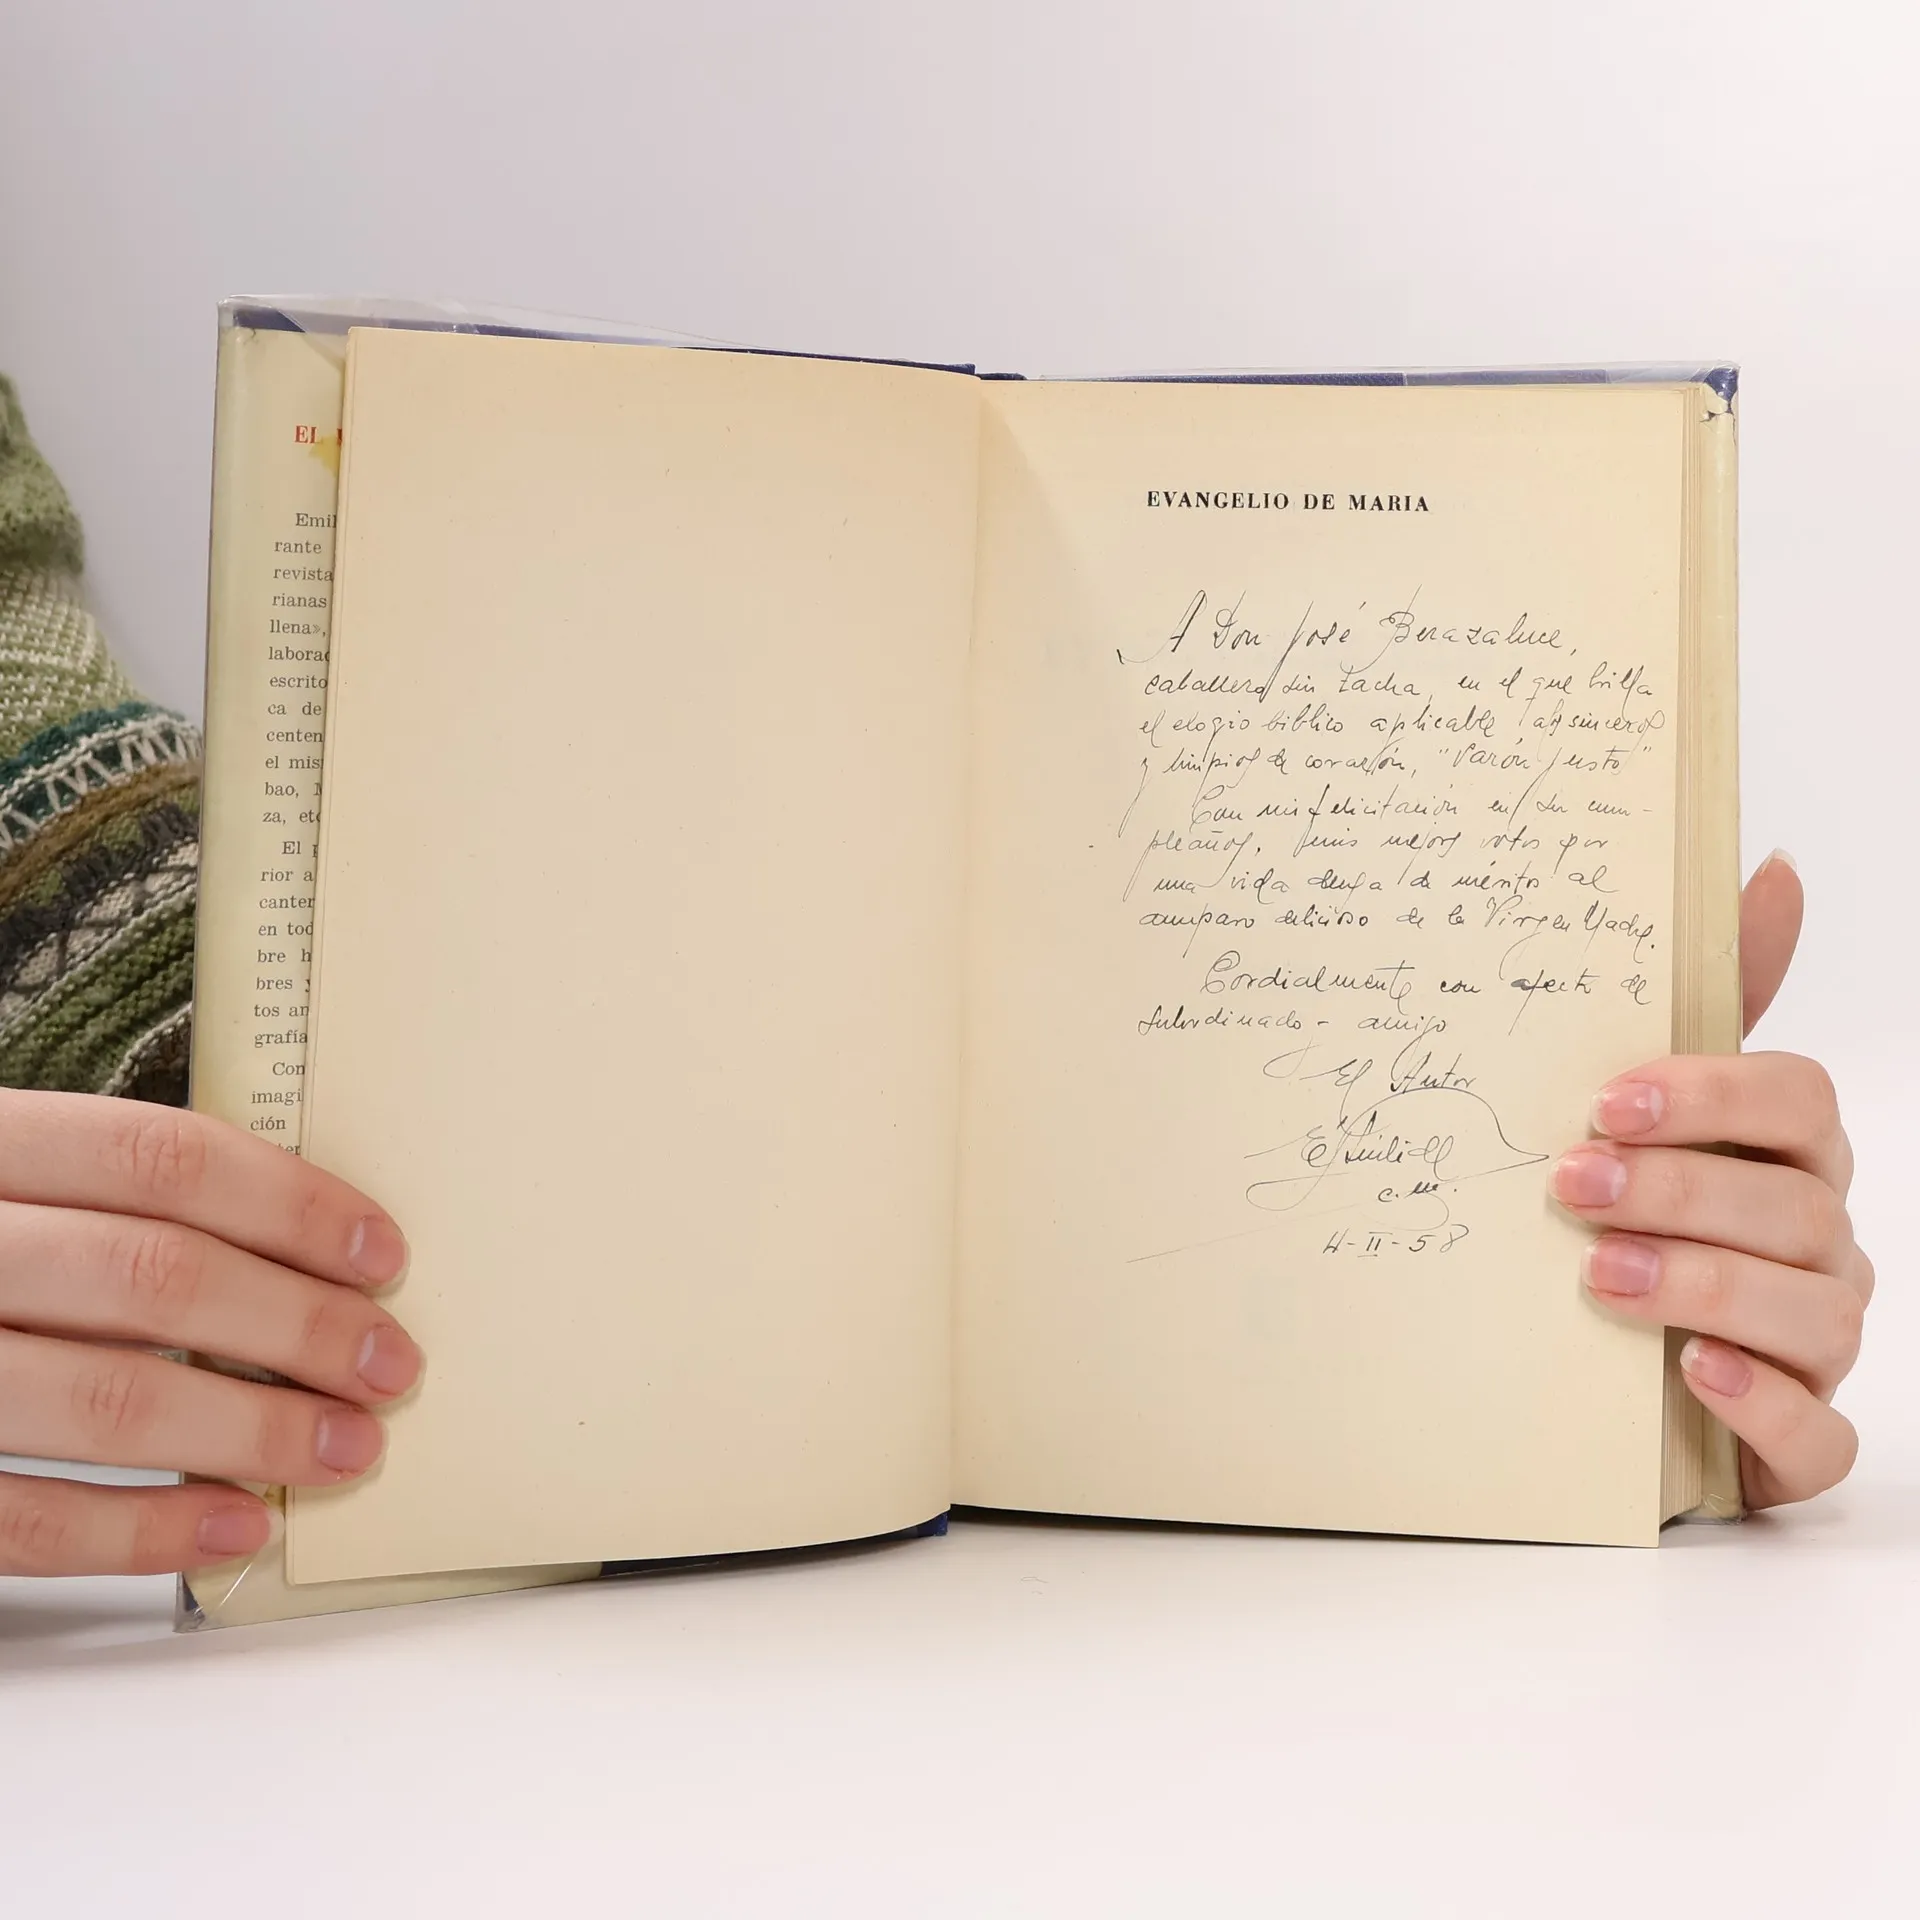 EL
Emil
rante
revista
rianas
llena»,
laborac
escrito
ca de
centen
el mis
bao,
za, etc
El p
rior a
canter
en tod
bre h
bres y
tos an
grafía
Con
imagi
ción
ter
EVANGELIO DE MARIA
A Don José Berazaluce,
caballero sin tacha, en el que brilla
el elogio bíblico aplicable a los sinceros
y limpios de corazón, "Varón justo"
Con mi felicitación en su cum-
pleaños, y mis mejores votos por
una vida de méritos al
amparo delicioso de la Virgen Madre.
Cordialmente con afecto de
subordinado - amigo
El Autor
c. m.
4-II-58